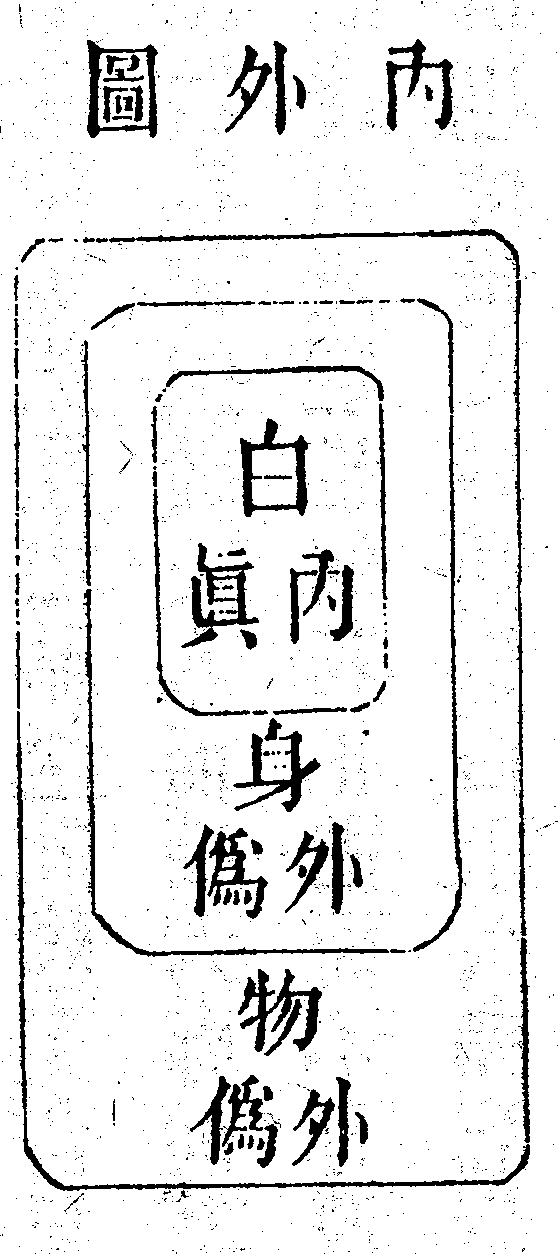 內外圖
白
內眞
身
外僞
物
外僞